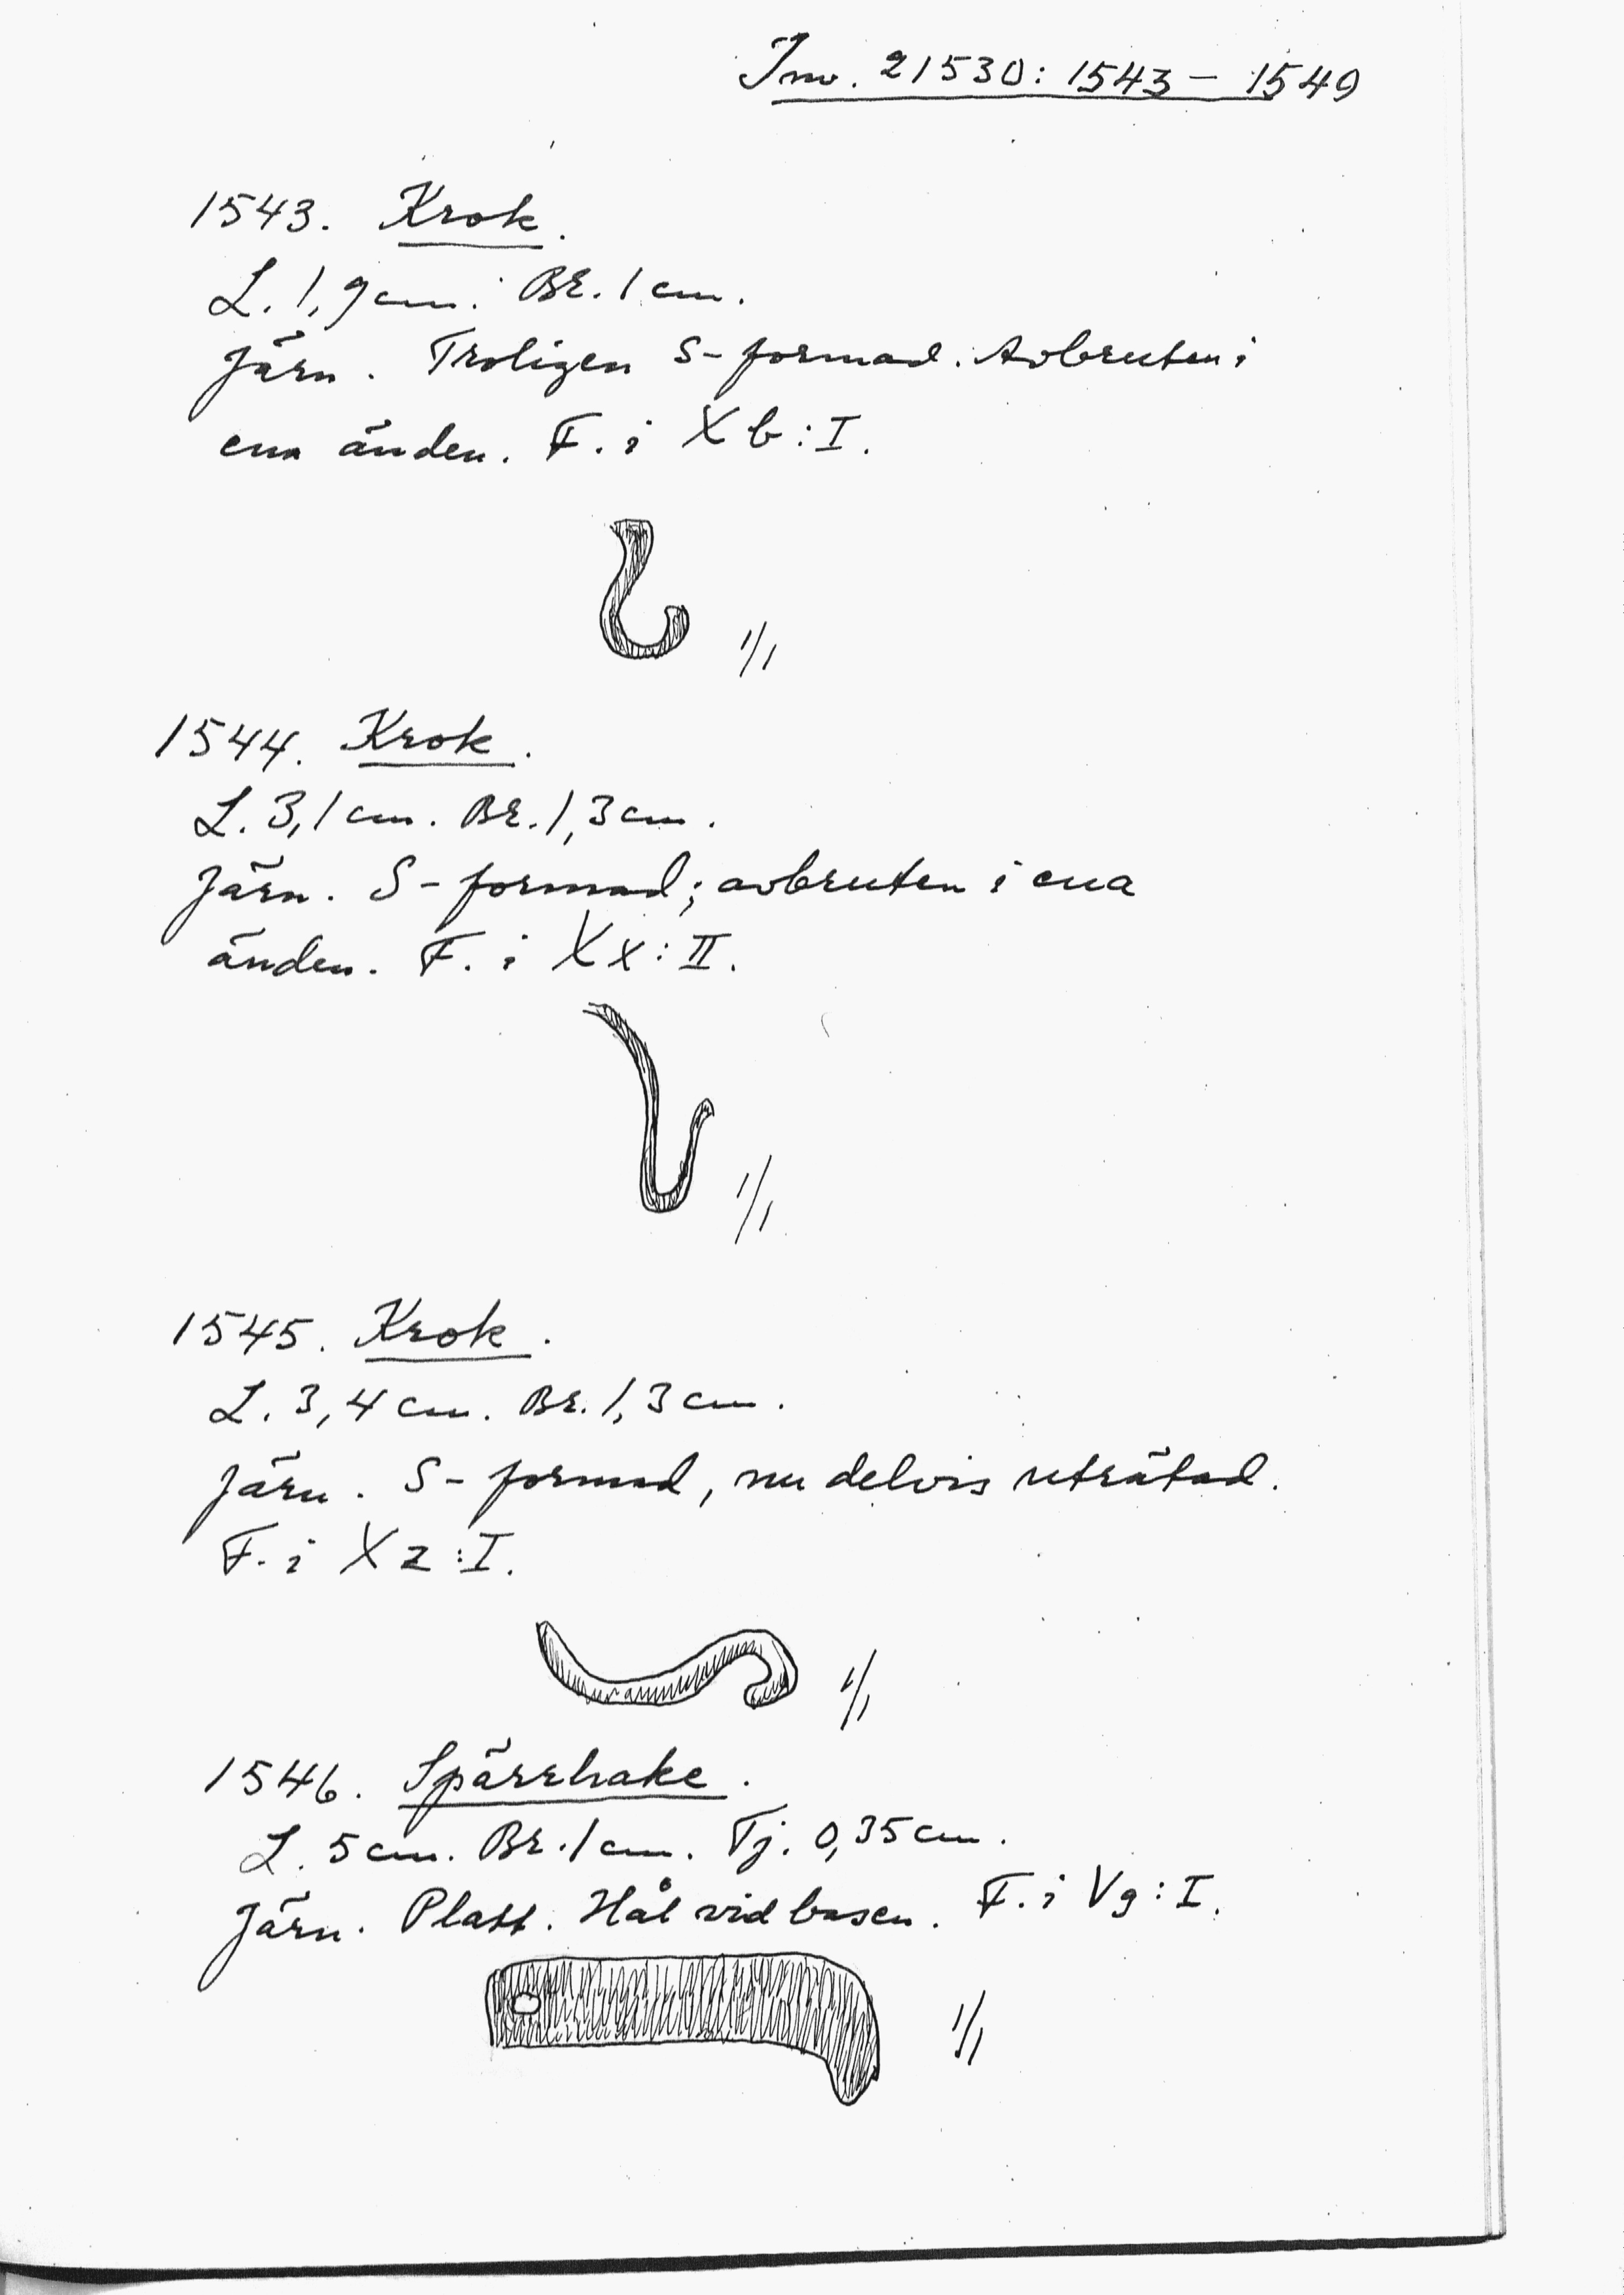 Inv. 21530: 1543 – 1549
1543. Krok.
L. 1,9 cm. Br. 1 cm.
Järn. Troligen S-formad. Avbruten i
ena änden. F. i Xb: I.
1/1
1544. Krok.
L. 3,1 cm. Br. 1,3 cm.
Järn. S-formad; avbruten i ena
änden. F. i Xx: II.
1/1
1545. Krok.
L. 3,4 cm. Br. 1,3 cm.
Järn. S-formad, nu delvis uträtad.
F. i Xz: I.
1/1
1546. Spärrhake.
L. 5 cm. Br. 1 cm. Tj. 0,35 cm.
Järn. Platt. Hål vid basen. F. i Vg: I.
1/1